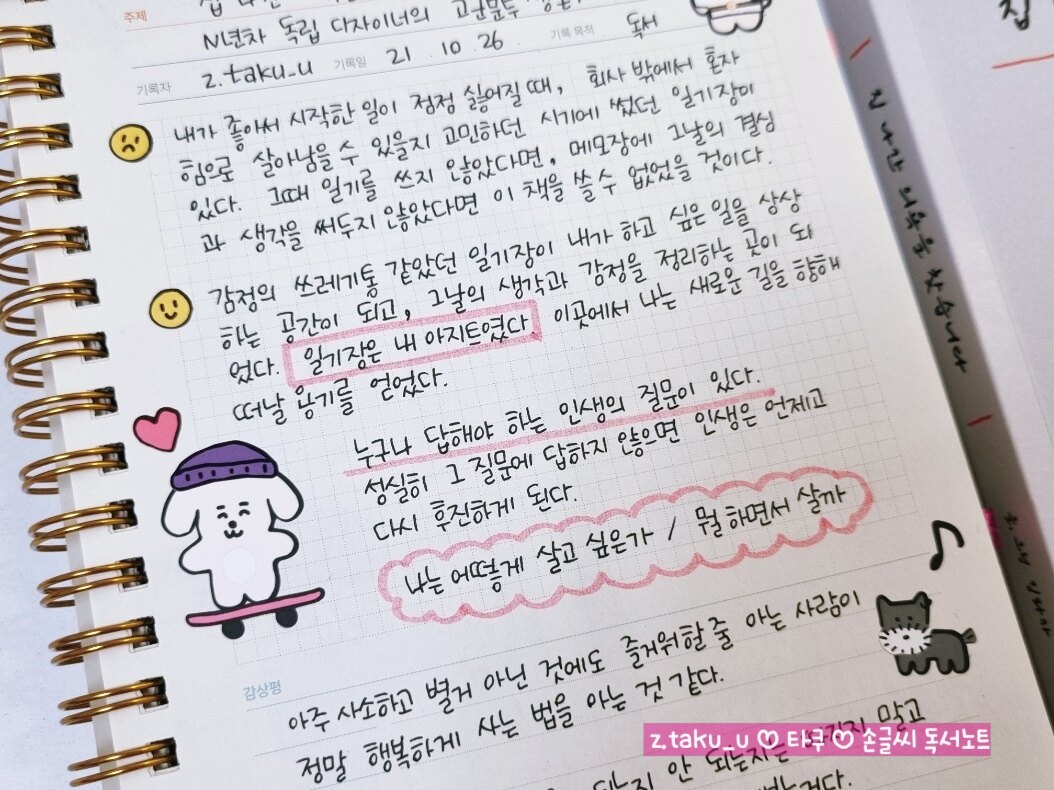 주제
N년차 독립 디자이너의 고군분투
기록자 z.taku_u 기록일 21 . 10 . 26 기록 목적 독서
내가 좋아서 시작한 일이 점점 싫어질 때, 회사 밖에서 혼자
힘으로 살아남을 수 있을지 고민하던 시기에 썼던 일기장이
있다. 그때 일기를 쓰지 않았다면, 메모장에 그날의 결심
과 생각을 써두지 않았다면 이 책을 쓸 수 없었을 것이다.
감정의 쓰레기통 같았던 일기장이 내가 하고 싶은 일을 상상
하는 공간이 되고, 그날의 생각과 감정을 정리하는 곳이 되
었다. 일기장은 내 아지트였다. 이곳에서 나는 새로운 길을 향해
떠날 용기를 얻었다.
누구나 답해야 하는 인생의 질문이 있다.
성실히 그 질문에 답하지 않으면 인생은 언제고
다시 후진하게 된다.
나는 어떻게 살고 싶은가 / 뭘 하면서 살까
감상평
아주 사소하고 별거 아닌 것에도 즐거워할 줄 아는 사람이
정말 행복하게 사는 법을 아는 것 같다.
되는지 안 되는지는 말고
z.taku_u ♡ 타쿠 ♡ 손글씨 독서노트